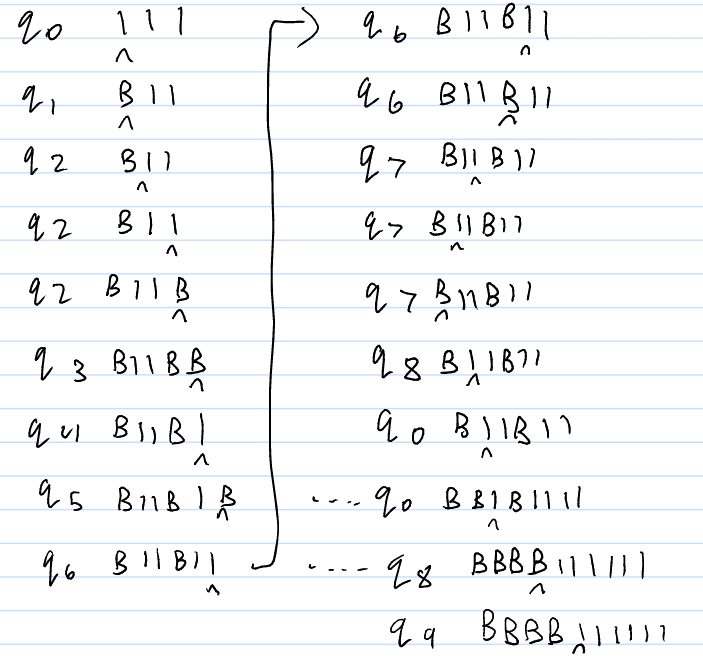 q0 111
^
q1 B11
^
q2 B11
^
q2 B11
^
q2 B11B
^
q3 B11BB
^
q4 B11B1
^
q5 B11B1B
^
q6 B11B11
^
q6 B11B11
^
q6 B11B11
^
q7 B11B11
^
q7 B11B11
^
q7 B11B11
^
q8 B11B11
^
q0 B11B11
^
.... q0 BB1B1111
^
.... q8 BBBB111111
^
q9 BBBB111111
^